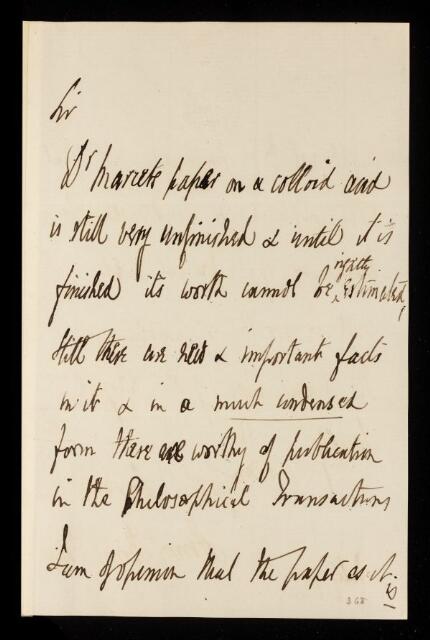 Sir
Dr Marcets paper on a colloid acid
is still very unfinished & until it is
finished its worth cannot be rightly estimated,
still there are new & important facts
in it & in a much condensed
form these are worthy of publication
in the Philosophical Transactions
I am of opinion that the paper as it is
368